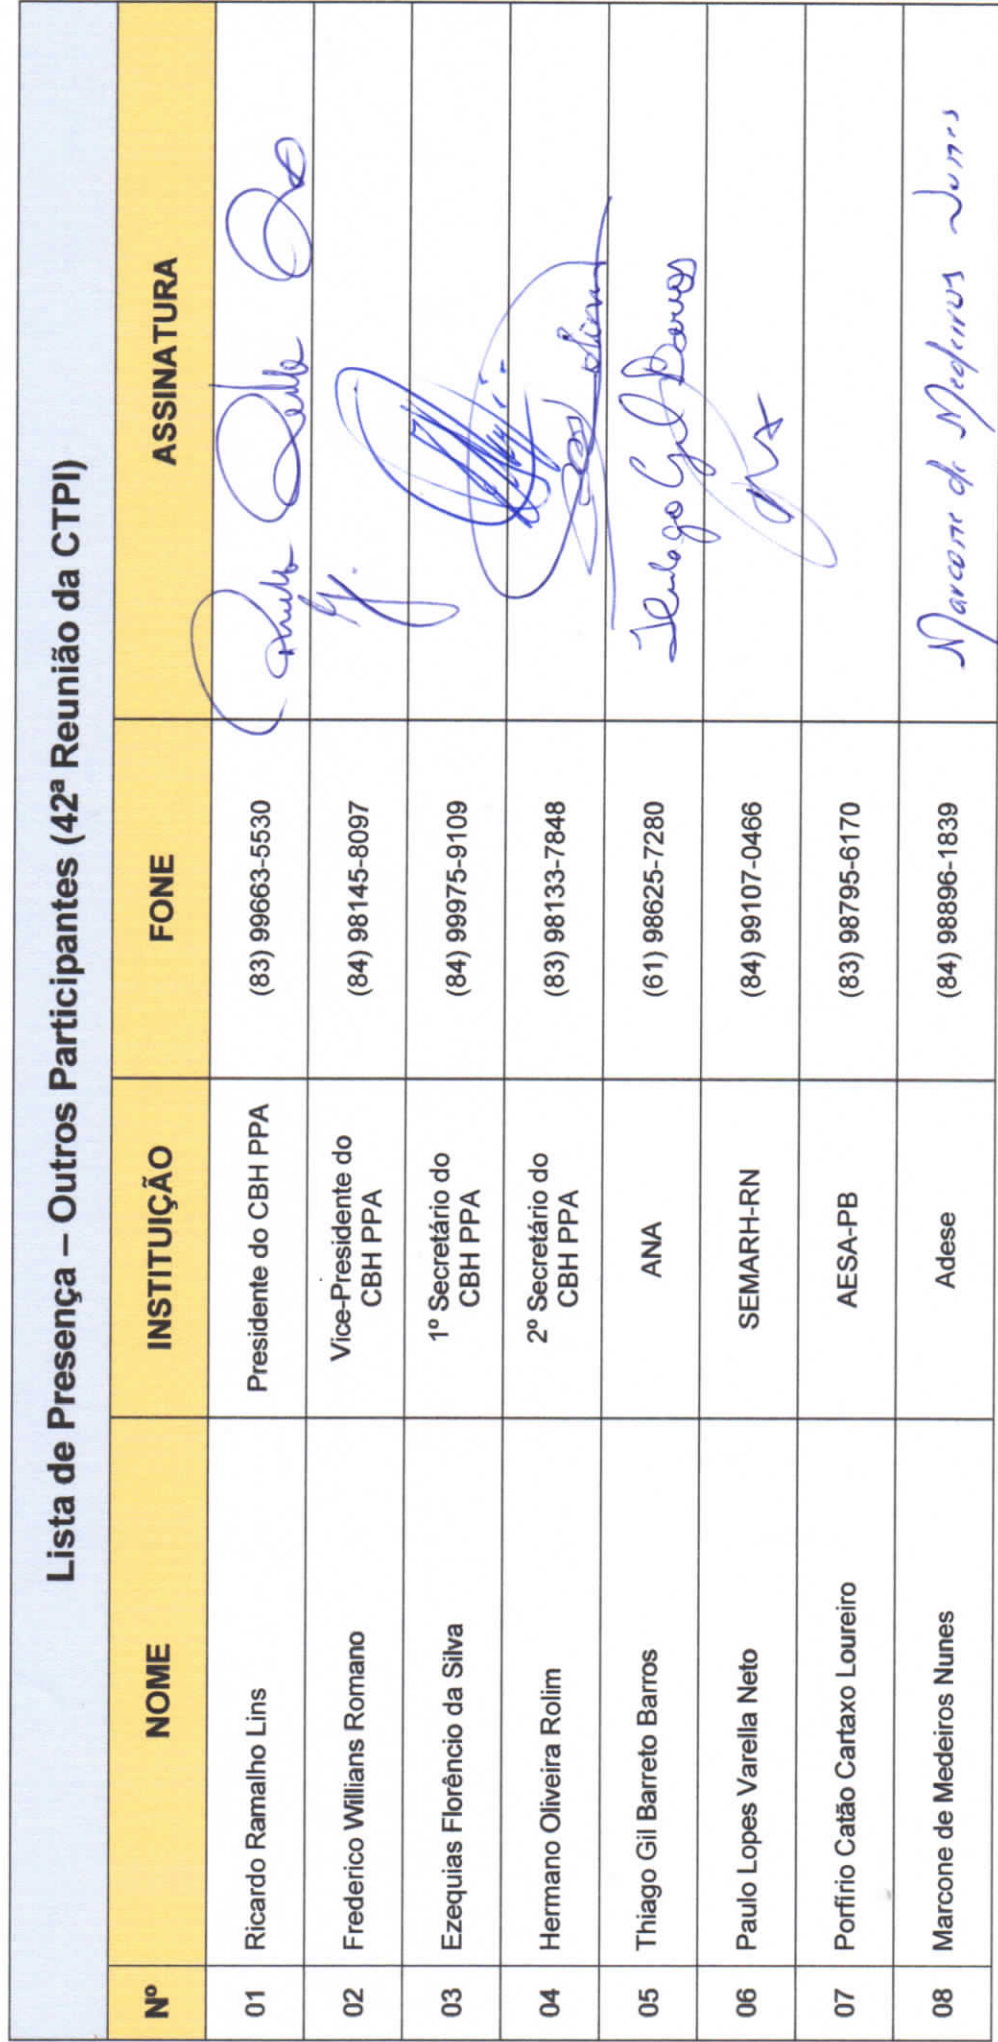 Lista de Presença – Outros Participantes (42ª Reunião da CTPI)
Nº NOME INSTITUIÇÃO FONE ASSINATURA
01 Ricardo Ramalho Lins Presidente do CBH PPA (83) 99663-5530
02 Frederico Willians Romano Vice-Presidente do
CBH PPA (84) 98145-8097
03 Ezequias Florêncio da Silva 1º Secretário do
CBH PPA (84) 99975-9109
04 Hermano Oliveira Rolim 2º Secretário do
CBH PPA (83) 98133-7848
05 Thiago Gil Barreto Barros ANA (61) 98625-7280 Thiago Gil Barros
06 Paulo Lopes Varella Neto SEMARH-RN (84) 99107-0466
07 Porfírio Catão Cartaxo Loureiro AESA-PB (83) 98795-6170
08 Marcone de Medeiros Nunes Adese (84) 98896-1839 Marcone de Medeiros Nunes